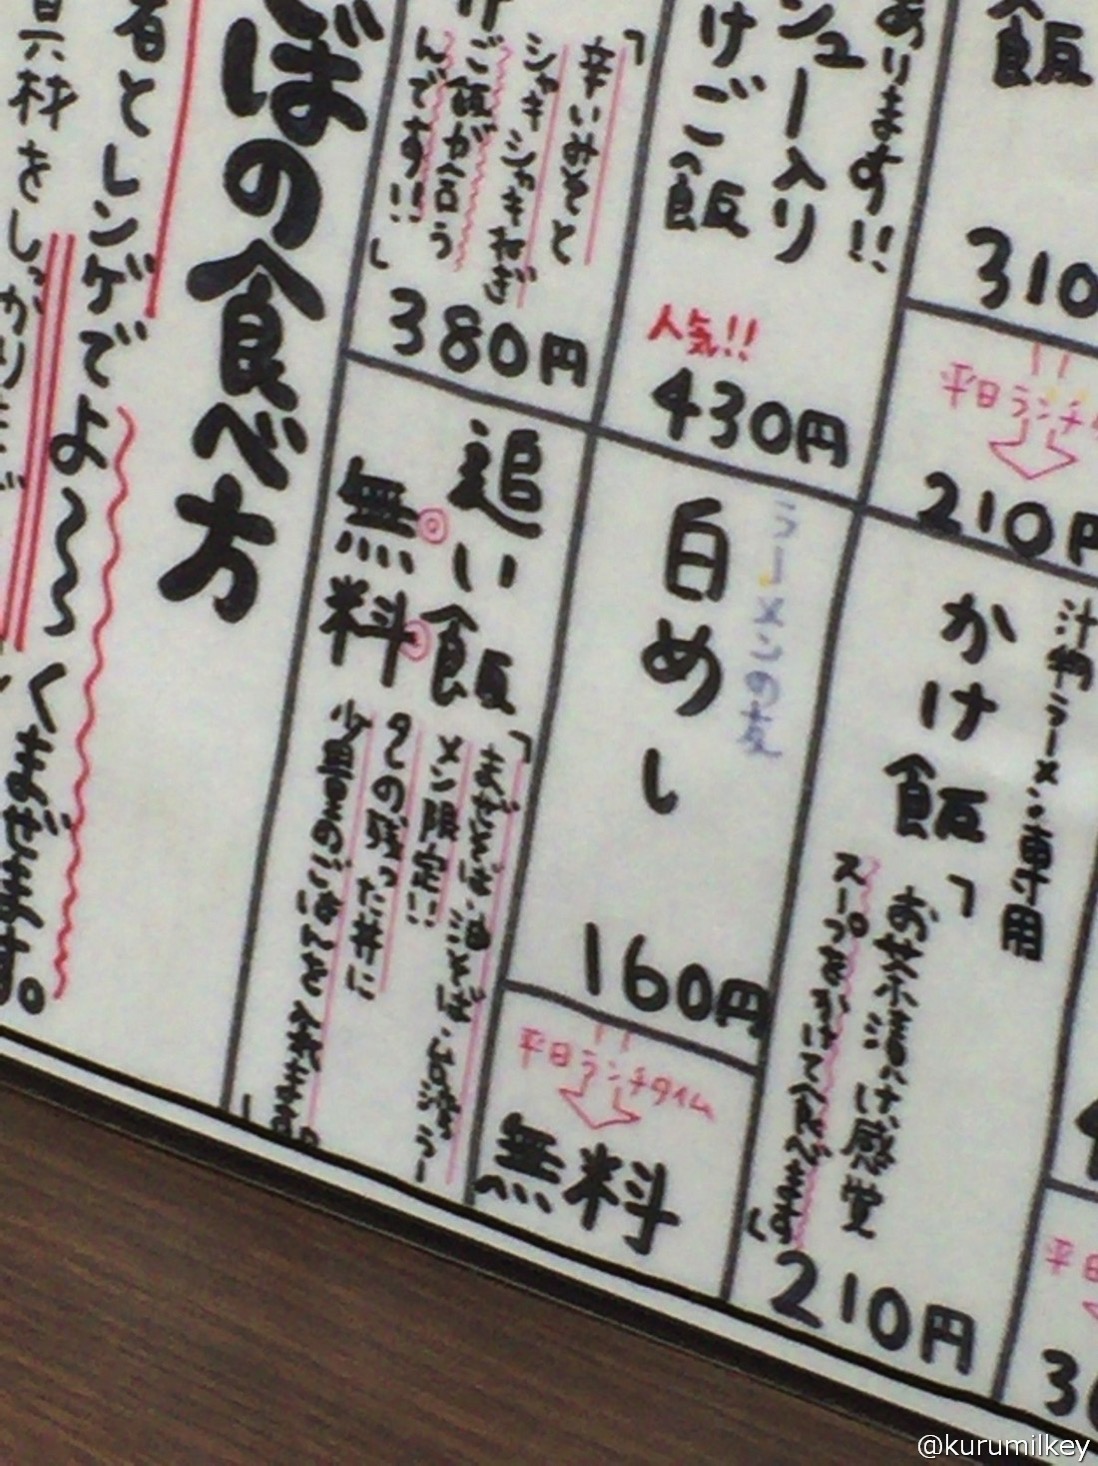 飯
310
平日ランチタ
210円
汁物ラーメン専用
かけ飯
「お茶漬け感覚
スープをかけて食べます」
210円
平日
あります!!
ュー入り
けご飯
人気!!
430円
ラーメンの友
白めし
160円
平日ランチタイム
無料
「辛いみそと
シャキシャキねぎ
ご飯が合う
んです!!」
380円
追い飯
無料
「まぜそば・油そば・台湾ラー
メン限定!!
の残った丼に
少量のごはんを入れます。」
ばの食べ方
とレンゲでよ〜〜くまぜます。